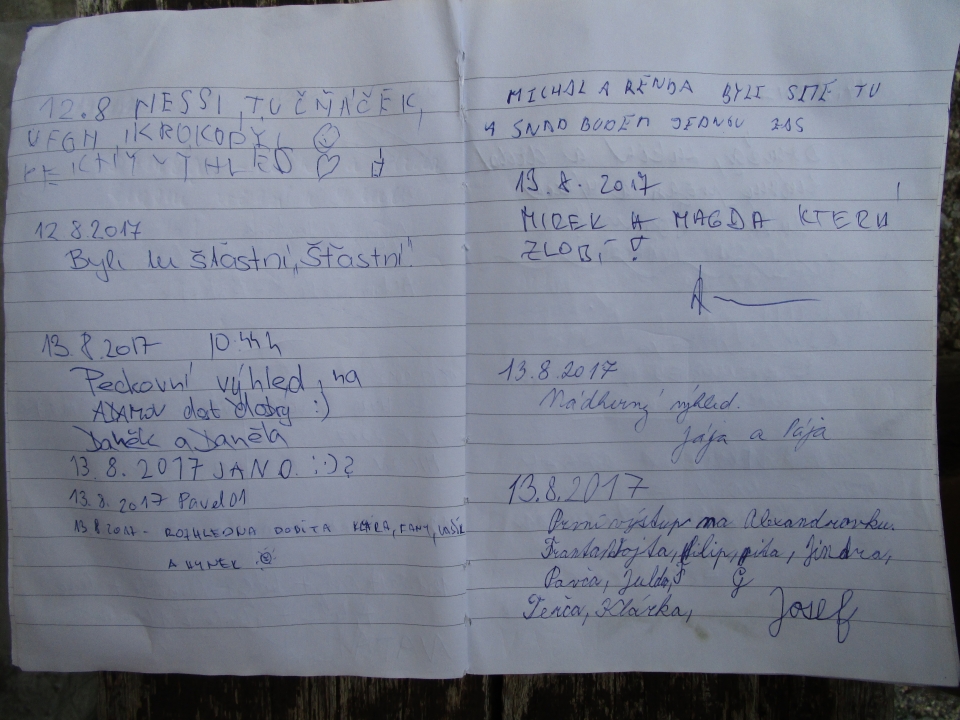 12.8 NESSI, TUČŇÁČEK,
KROKODÝL
VÝHLED
12.8.2017
Byli tu šťastní „Šťastní“.
13.8.2017 10:44h
Peckovní výhled, na
ADAMOV dost dobrý :)
Daněk a Daněla
13.8.2017 JANO. :)?
13.8.2017 Pavel01
13.8.2017 - ROZHLEDNA DOBITA KLÁRA, FANY, VAŠÍK
A HYNEK
MICHAL A RENDA BYLI SME TU
A SNAD BUDEM JEDNOU ZAS
13.8.2017
MIREK A MAGDA KTERÁ
ZLOBÍ !
13.8.2017
Nádherný výhled.
Jája a Pája
13.8.2017
První výstup na Alexandrovku.
Franta, Vojta, Filip, Jindra,
Pavča, G
Terča, Klárka, Josef